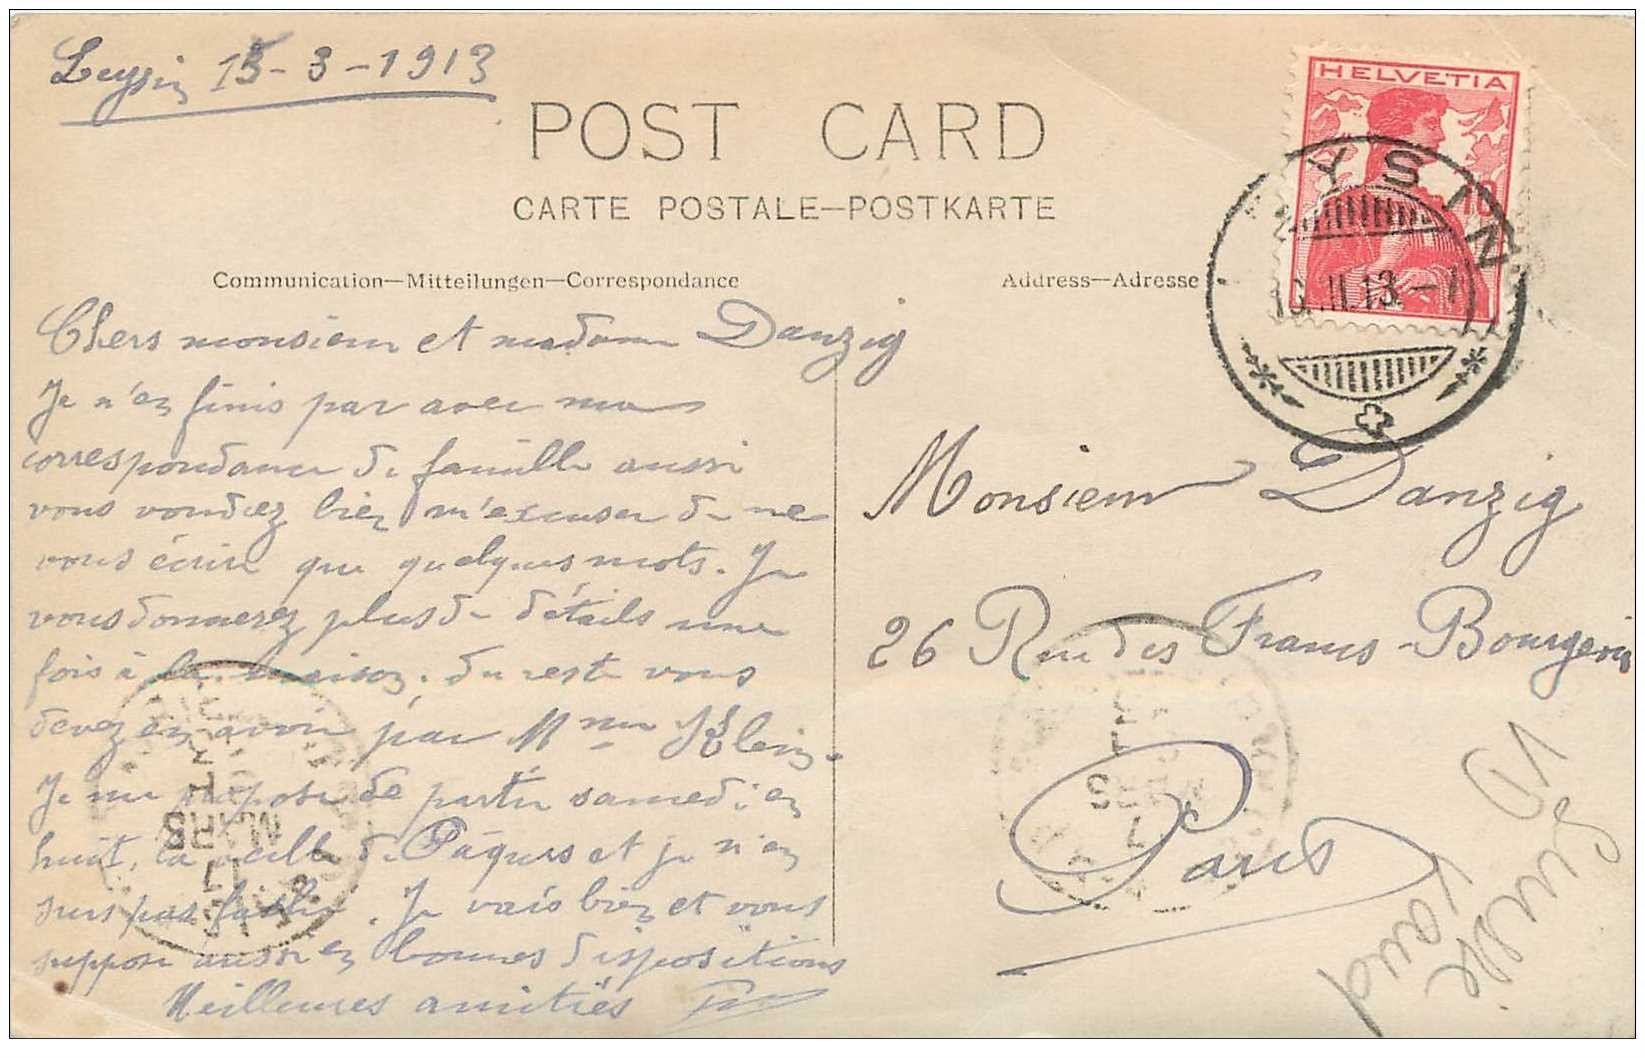 Leysin 15-3-1913
POST CARD
CARTE POSTALE—POSTKARTE
Communication—Mitteilungen—Correspondance
Address—Adresse
HELVETIA
10
YSIN
Chers monsieur et madame Danzig
Je n'en finis pas avec ma
correspondance de famille aussi
vous voudrez bien m'excuser de ne
vous écrire que quelques mots. Je
vous donnerez plus de détails une
fois à la maison. du reste vous
devez en avoir par Mme Klein.
Je me propose de partir samedi en
huit, la veille de Pâques et je n'en
suis pas fâché. Je vais bien et vous
suppose aussi en bonnes dispositions
Meilleures amitiés
Monsieur Danzig
26 Rue des Francs-Bourgeois
Paris
MARS
Suisse
Vaud